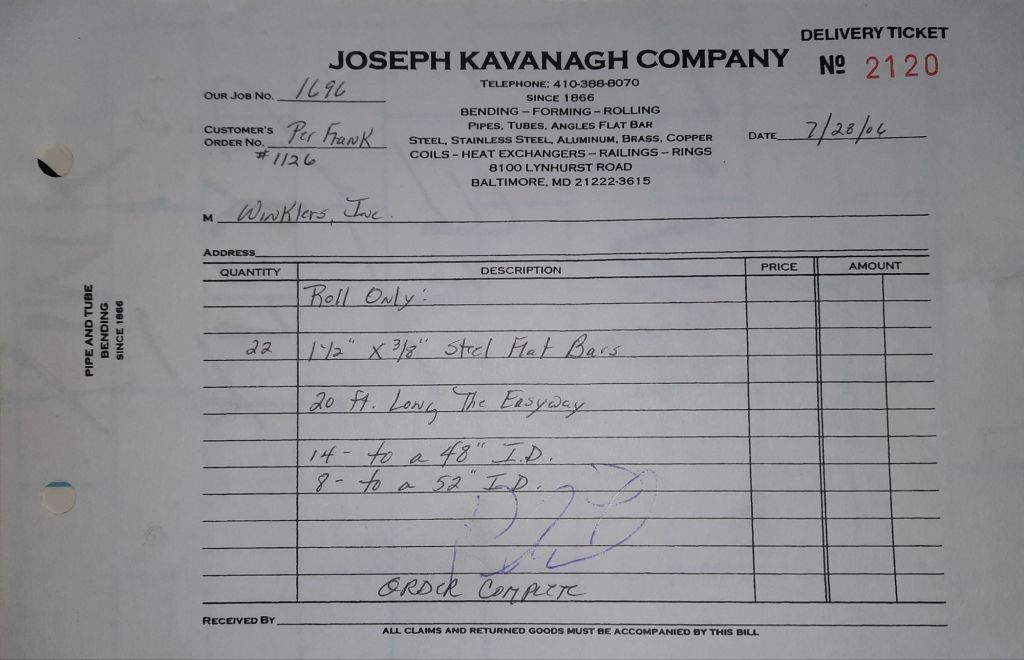 DELIVERY TICKET
JOSEPH KAVANAGH COMPANY
Nº 2120
TELEPHONE: 410-388-8070
SINCE 1866
BENDING – FORMING – ROLLING
PIPES, TUBES, ANGLES FLAT BAR
STEEL, STAINLESS STEEL, ALUMINUM, BRASS, COPPER
COILS – HEAT EXCHANGERS – RAILINGS – RINGS
8100 LYNHURST ROAD
BALTIMORE, MD 21222-3615
OUR JOB NO. 1696
CUSTOMER'S ORDER NO. Per Frank
#1126
DATE 7/28/06
M Winklers, Inc.
ADDRESS
QUANTITY DESCRIPTION PRICE AMOUNT
Roll Only:
22 1 1/2" x 3/8" Steel Flat Bars
20 ft. Long The Easyway
14 - to a 48" I.D.
8 - to a 52" I.D.
ORDER COMPLETE
RECEIVED BY
ALL CLAIMS AND RETURNED GOODS MUST BE ACCOMPANIED BY THIS BILL
PIPE AND TUBE
BENDING
SINCE 1866